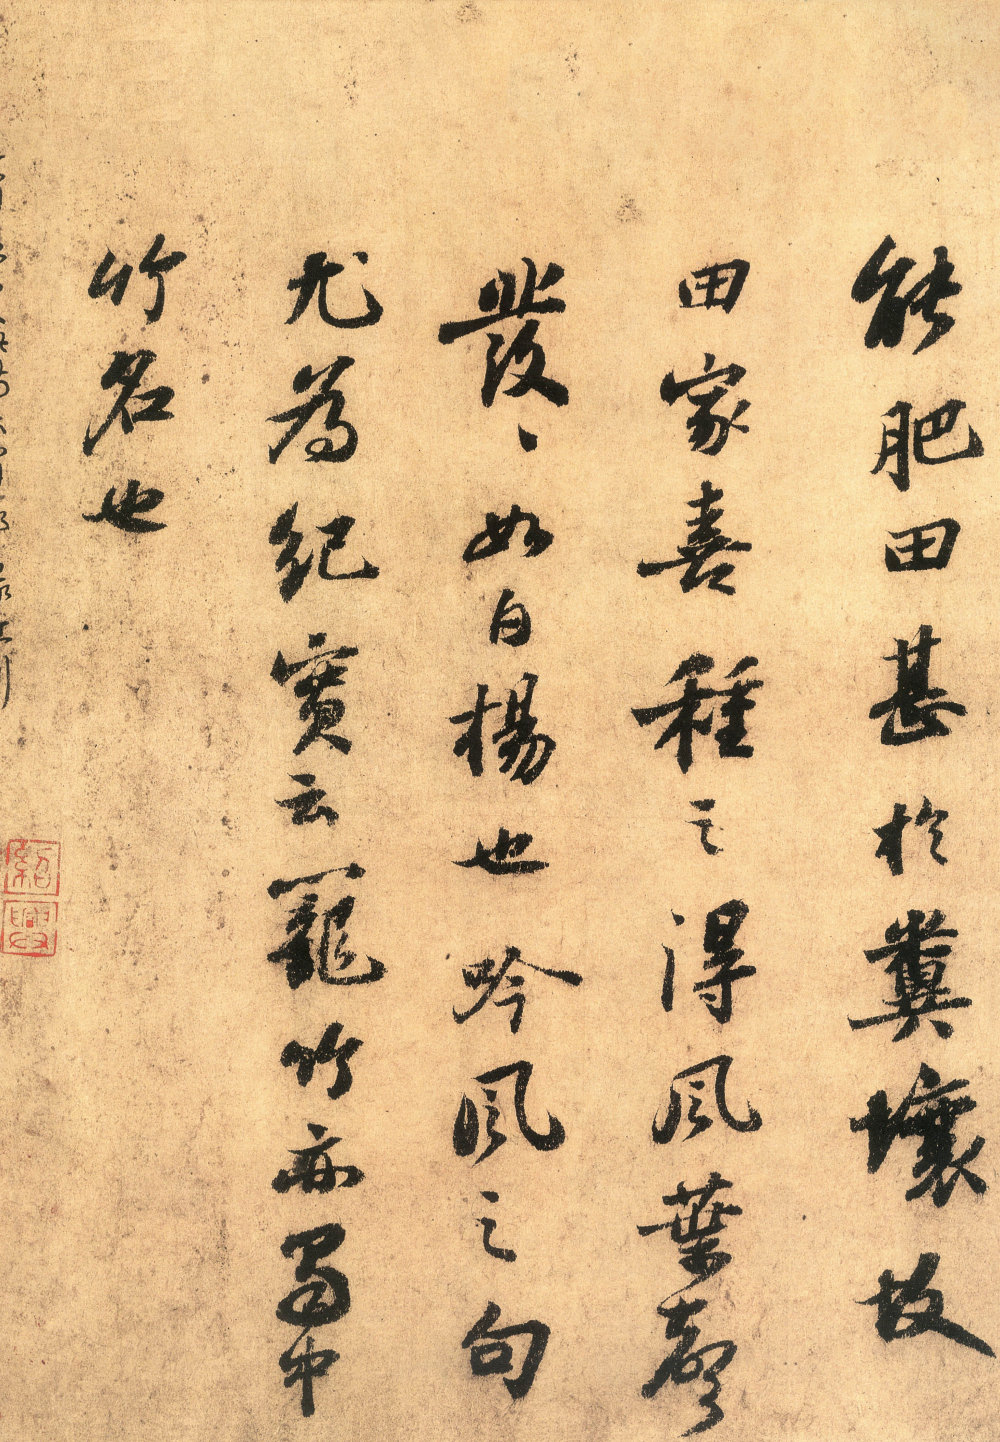 能肥田甚於糞壤故
田家喜種之得風葉聲
發〻如白楊也吟風之句
尤為紀實云籠竹亦蜀中
竹名也
紹興